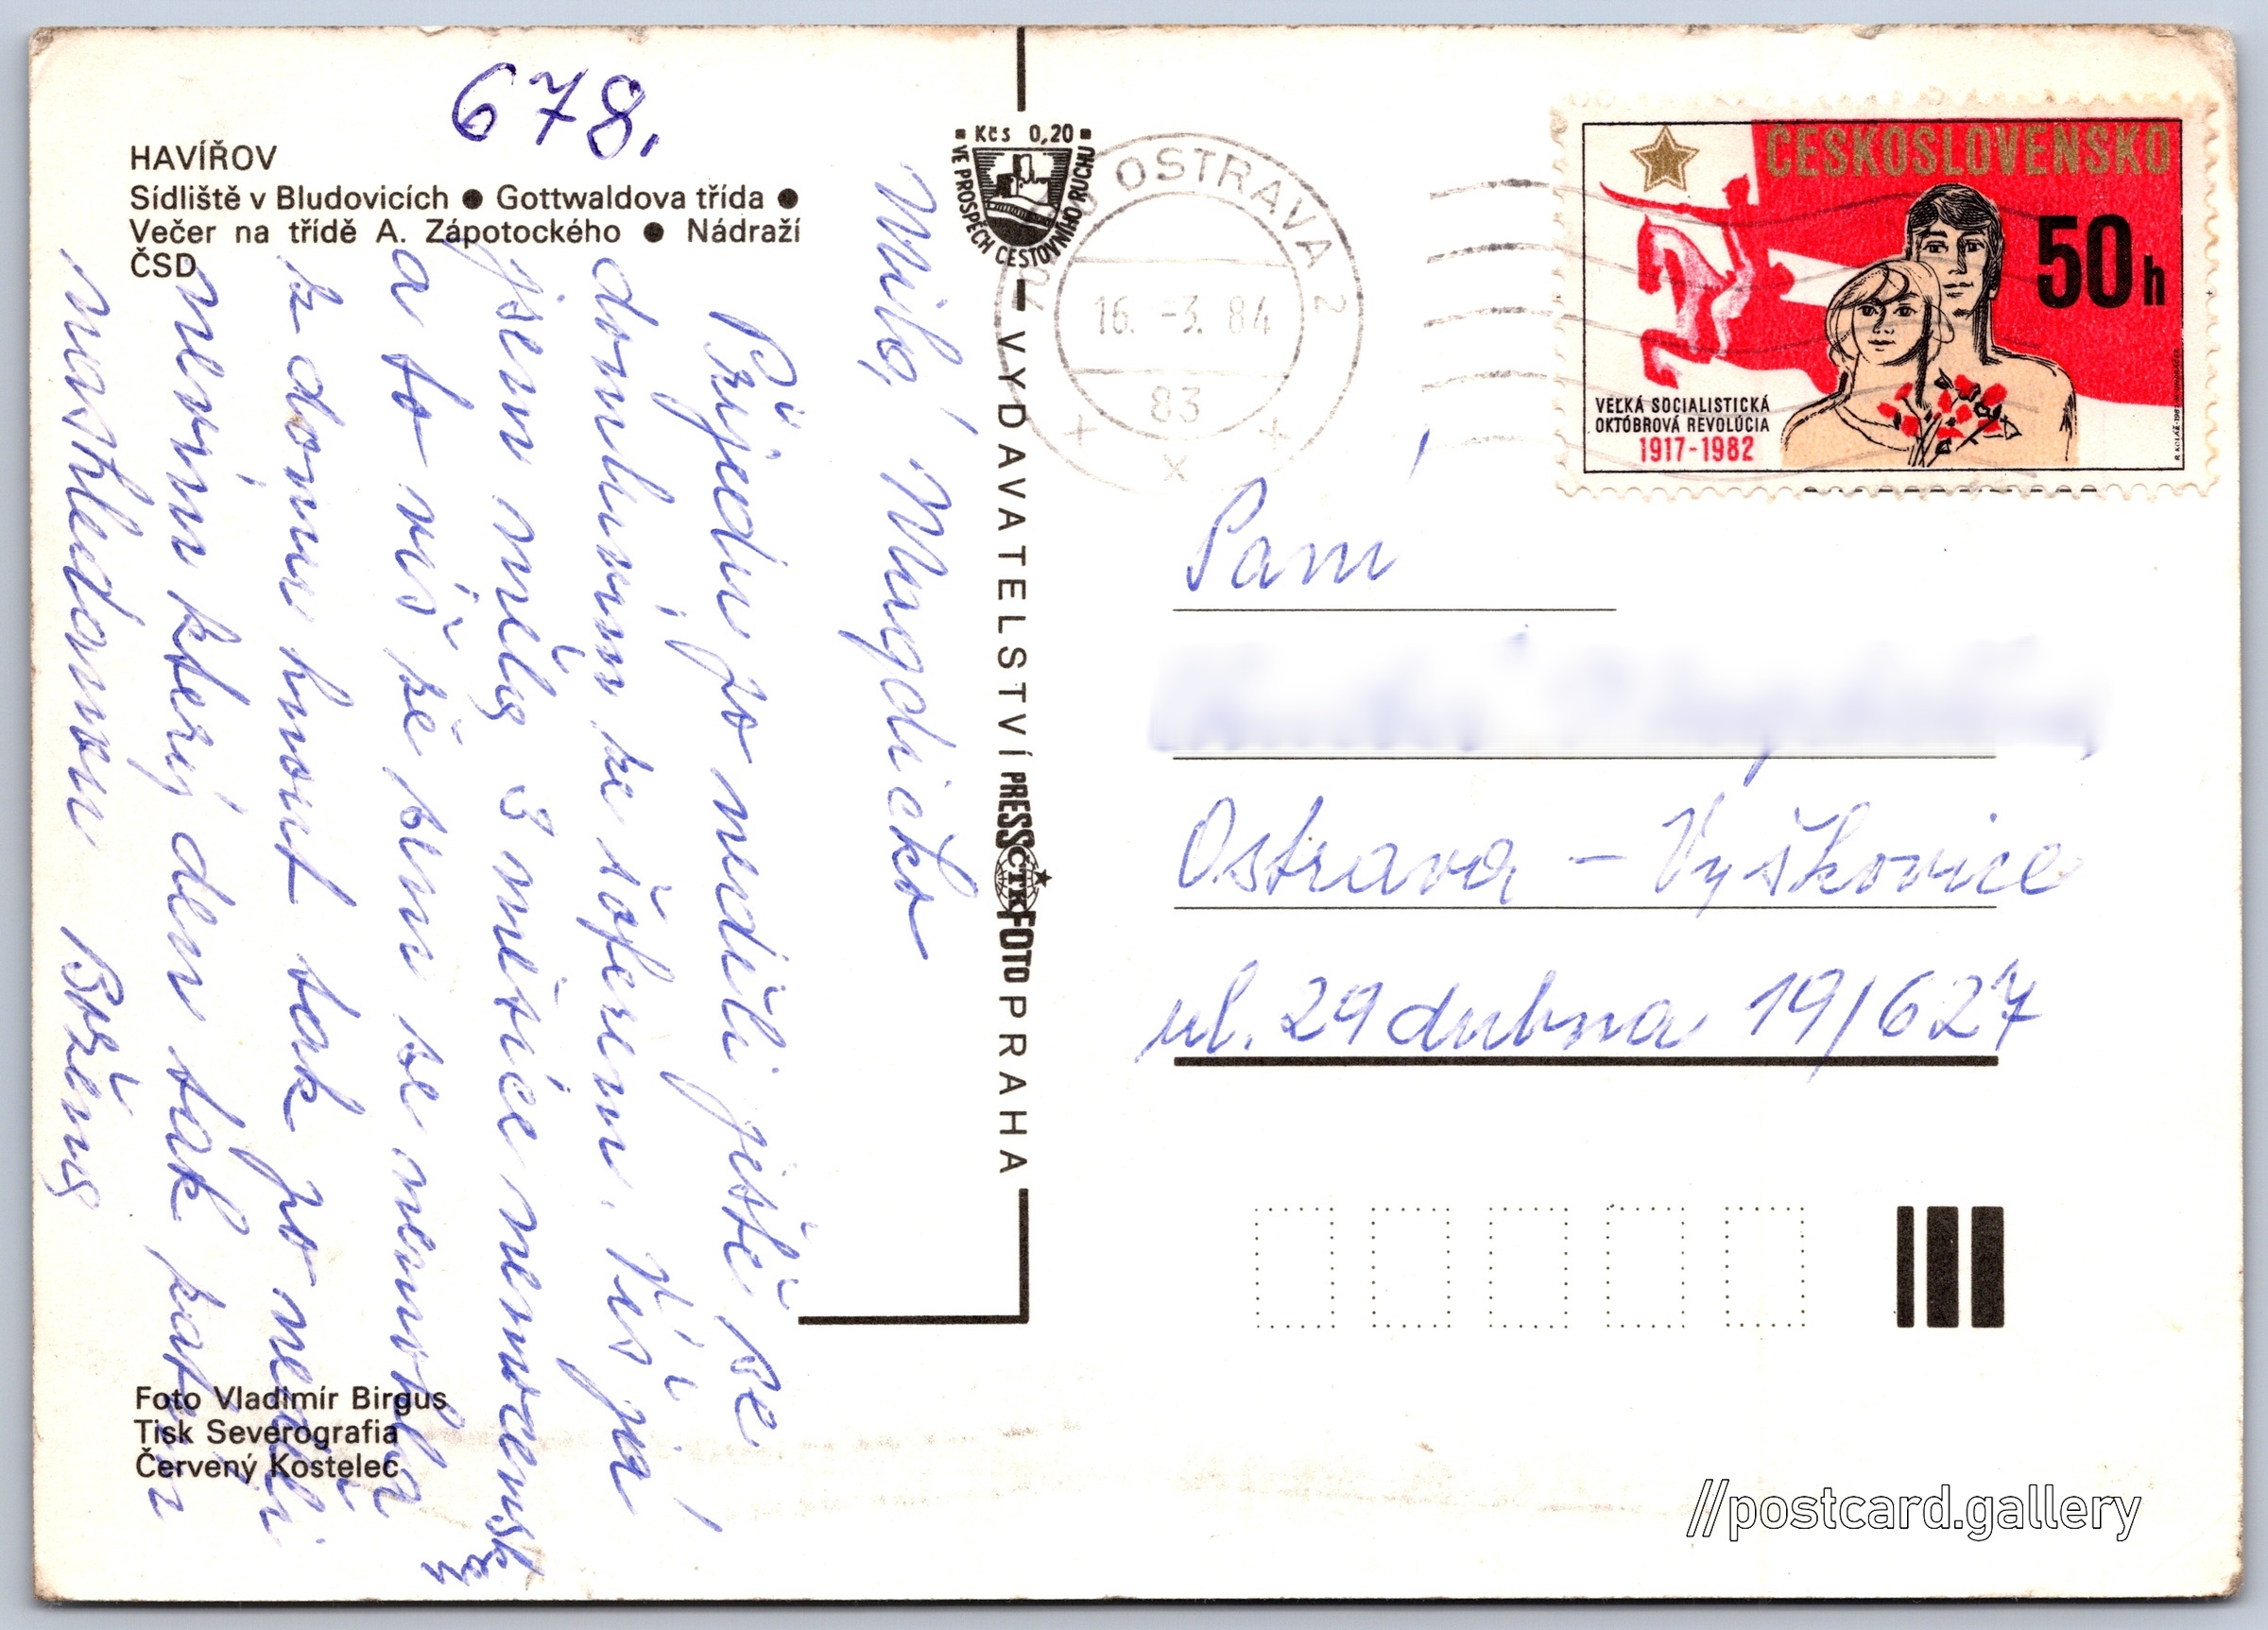 678.
HAVÍŘOV
Sídliště v Bludovicích ● Gottwaldova třída ●
Večer na třídě A. Zápotockého ● Nádraží
ČSD
Milá Magdičko
Přijedu po neděli ještě se
domluvím se šoferem. Víš já
jsem měla 3 měsíce nemocensk
a to víš že jsem se nemohla
z domu hnout tak po neděli
nevím který den tak zatím
nashledanou Božena
Foto Vladimír Birgus
Tisk Severografia
Červený Kostelec
Kčs 0,20
VE PROSPĚCH CESTOVNÍHO RUCHU
VYDAVATELSTVÍ PRESSFOTO PRAHA
ČTK
OSTRAVA 2
16.-3. 84
83
x
ČESKOSLOVENSKO
50 h
VEĽKÁ SOCIALISTICKÁ
OKTÓBROVÁ REVOLÚCIA
1917-1982
Paní
Ostrava - Výškovice
ul. 29 dubna 19/627
//postcard.gallery